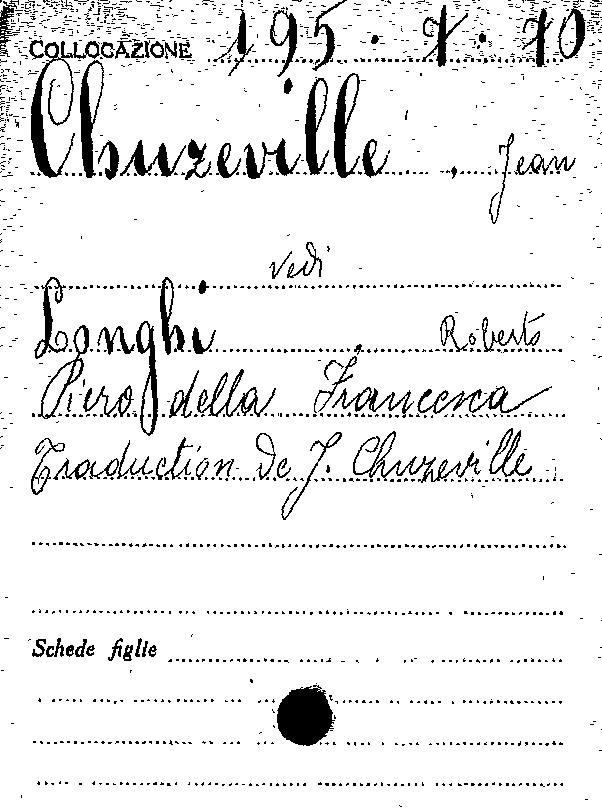 COLLOCAZIONE 195. 7. 70
Chuzeville, Jean
vedi
Longhi, Roberto
Piero della Francesca
Traduction de J. Chuzeville
Schede figlie